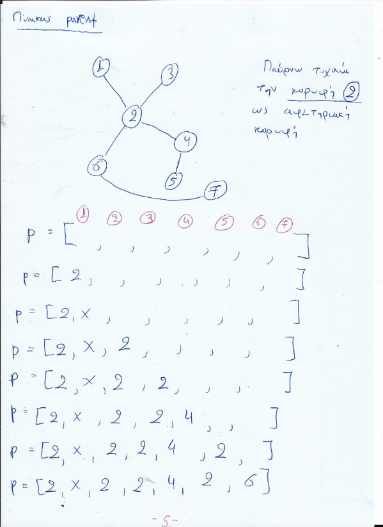 Πίνακας parent
1
3
2
4
6
5
7
Παίρνω τυχαία
την κορυφή 2
ως αφετηριακή
κορυφή
1 2 3 4 5 6 7
p = [ , , , , , , ]
p = [ 2, , , , , , ]
p = [2, x, , , , , ]
p = [2, x, 2, , , , ]
p = [2, x, 2, 2, , , ]
p = [2, x, 2, 2, 4, , ]
p = [2, x, 2, 2, 4, 2, ]
p = [2, x, 2, 2, 4, 2, 6]
-5-